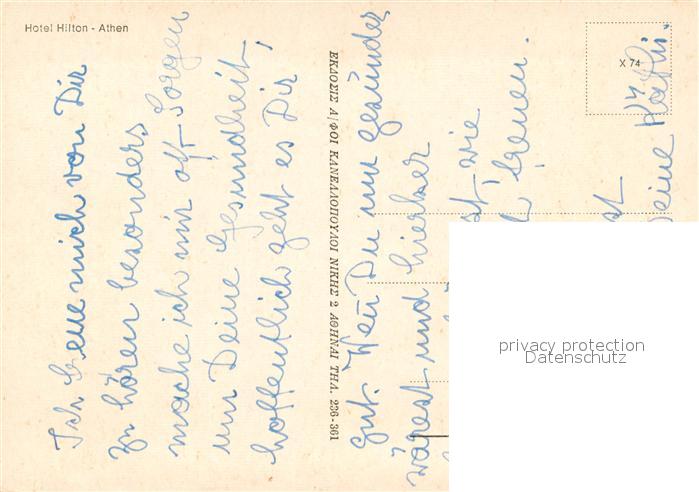 Hotel Hilton - Athen
X 74
Ich freue mich von Dir
zu hören besonders
mache ich mir oft Sorgen
um Deine Gesundheit,
hoffentlich geht es Dir
ΕΚΔΟΣΙΣ Α/ΦΟΙ ΚΑΝΕΛΛΟΠΟΥΛΟΙ ΝΙΚΗΣ 2 ΑΘΗΝΑΙ ΤΗΛ. 236-361
gut. Wen Du nur gesünder
wärest und hierher
wie
freuen.
Deine Käthi.
privacy protection
Datenschutz